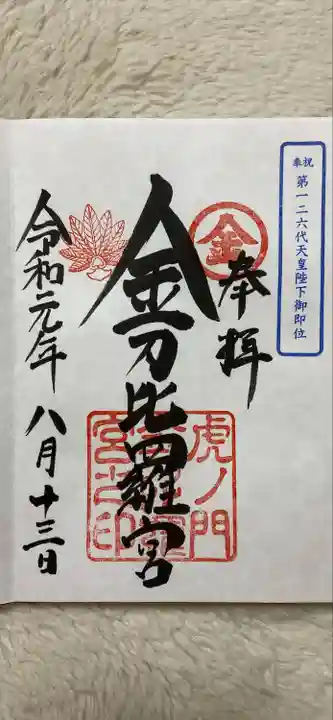 奉祝 第一二六代天皇陛下御即位
奉拝
金
金刀比羅宮
虎ノ門
宮之印
令和元年 八月十三日